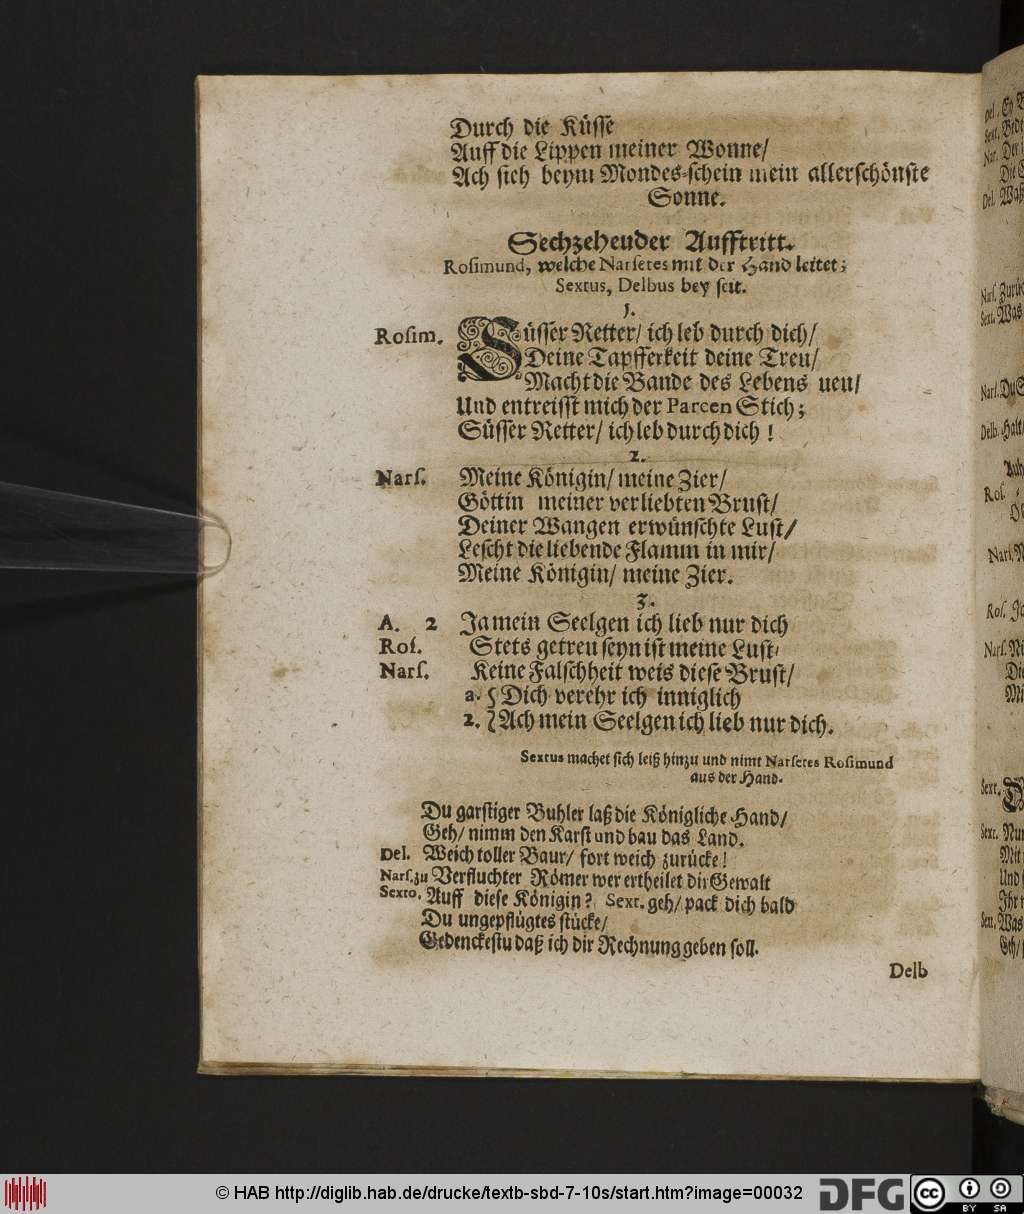 Durch die Küsse
Auff die Lippen meiner Wonne/
Ach sich beym Mondes-schein mein allerschönste
Sonne.
Sechzehender Aufftritt.
Rosimund, welche Narsetes mit der Hand leitet;
Sextus, Delbus bey seit.
1.
Rosim. Süsser Retter/ ich leb durch dich/
Deine Tapfferkeit deine Treu/
Macht die Bande des Lebens neu/
Und entreisst mich der Parcen Stich;
Süsser Retter/ ich leb durch dich!
2.
Nars. Meine Königin/ meine Zier/
Göttin meiner verliebten Brust/
Deiner Wangen erwünschte Lust/
Lescht die liebende Flamm in mir/
Meine Königin/ meine Zier.
3.
A. 2 Ja mein Seelgen ich lieb nur dich
Ros. Stets getreu seyn ist meine Lust/
Nars. Keine Falschheit weis diese Brust/
a. { Dich verehr ich inniglich
2. { Ach mein Seelgen ich lieb nur dich.
Sextus machet sich leiß hinzu und nimt Narsetes Rosimund
aus der Hand.
Du garstiger Buhler laß die Königliche Hand/
Geh/ nimm den Karst und bau das Land.
Del. Weich toller Baur/ fort weich zurücke!
Nars. zu Verfluchter Römer wer ertheilet dir Gewalt
Sexto. Auff diese Königin? Sext. geh/ pack dich bald
Du ungepflügtes stücke/
Gedenckestu daß ich dir Rechnung geben soll.
Delb
© HAB http://diglib.hab.de/drucke/textb-sbd-7-10s/start.htm?image=00032
DFG
cc BY SA